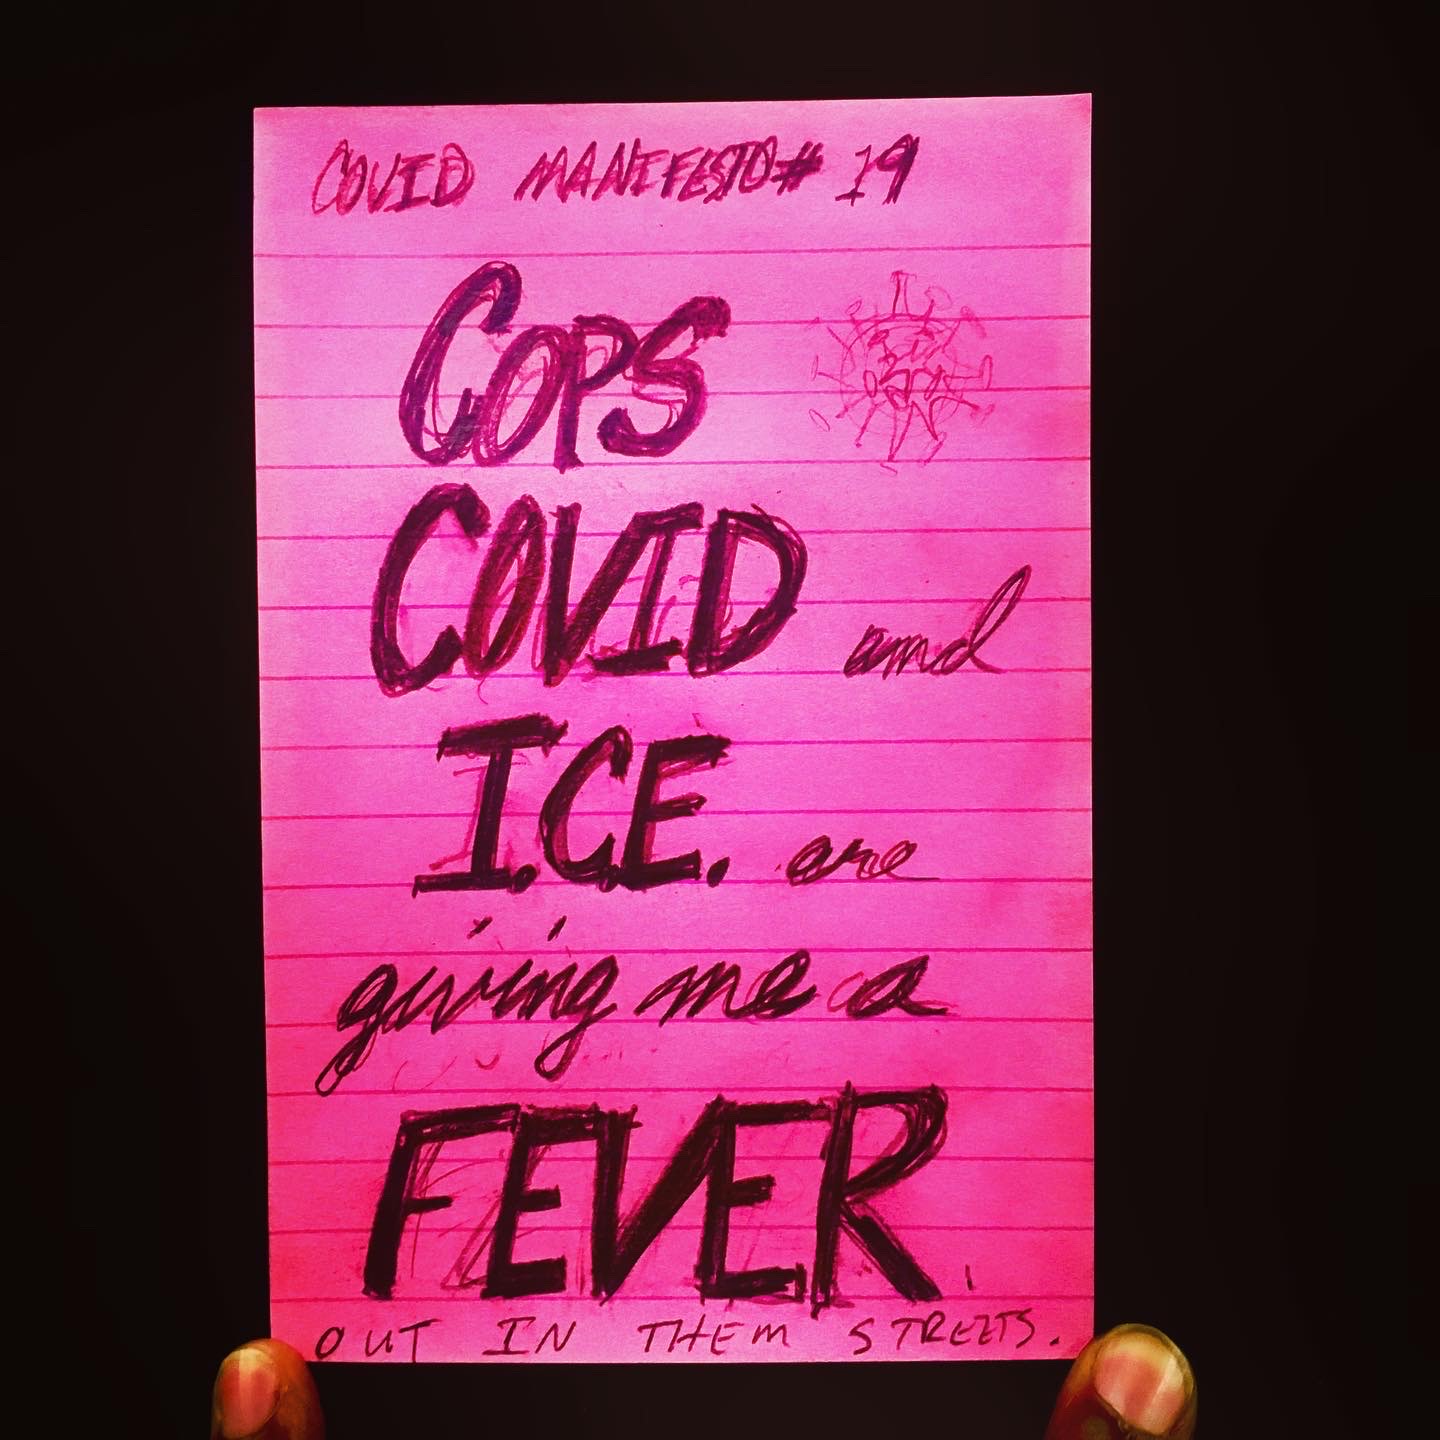 COVID MANIFESTO# 19
COPS
COVID and
I.C.E. are
giving me a
FEVER
OUT IN THEM STREETS.